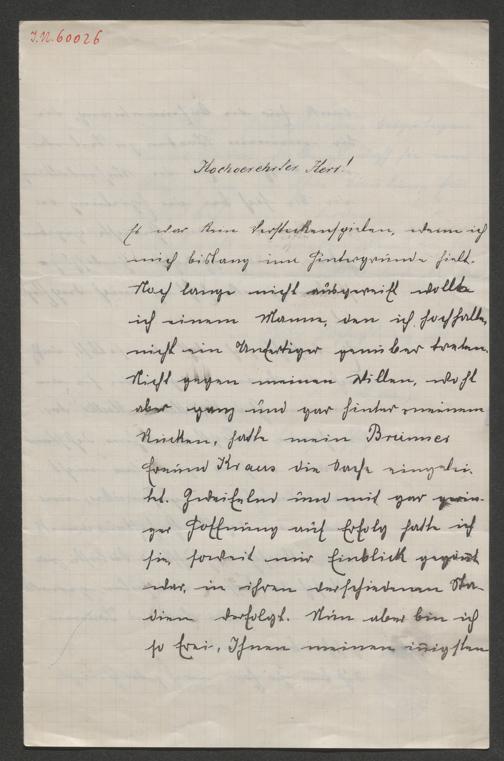 I.N. 60026
Hochverehrter Herr!
Es war kein Versteckenspielen, wenn ich
mich bislang im Hintergrunde hielt.
Noch lange nicht ausgereift wollte
ich einem Manne, den ich hochhalte,
nicht ein Unfertiger genüber treten.
Nicht gegen meinen Willen, wohl
aber ganz und gar hinter meinem
Rücken, hatte mein Brünner
Freund Kraus die Sache eingelei-
tet. Zweifelnd und mit gar gerin-
ger Hoffnung auf Erfolg hatte ich
sie, soweit mir Einblick gegönnt
war, in ihren verschiedenen Sta-
dien verfolgt. Nun aber bin ich
so frei, Ihnen meinen innigsten